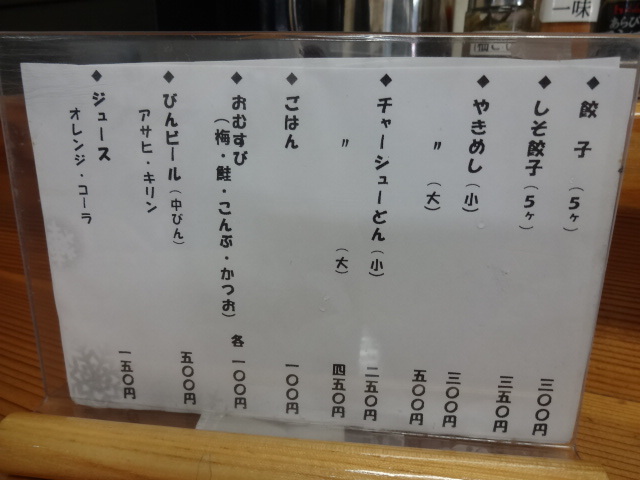 ◆餃子（5ヶ） 三〇〇円
◆しそ餃子（5ヶ） 三五〇円
◆やきめし（小） 三〇〇円
〃（大） 五〇〇円
◆チャーシューとん（小） 二五〇円
〃（大） 四五〇円
◆ごはん 一〇〇円
◆おむすび
（梅・鮭・こんぶ・かつお）各一〇〇円
◆びんビール（中びん） 五〇〇円
アサヒ・キリン
◆ジュース 一五〇円
オレンジ・コーラ
一味